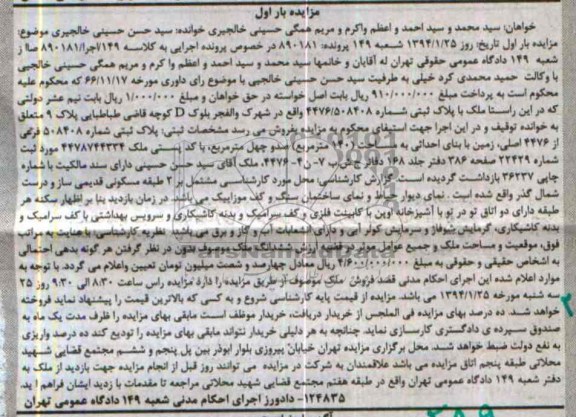 مزایده بار اول
خواهان: سید محمد و سید احمد و اعظم واکرم و مریم همگی حسینی خالجیری خوانده: سید حسن حسینی خالجیری موضوع:
مزایده بار اول تاریخ: روز ۱۳۹۴/۱/۲۵ شعبه ۱۴۹ پرونده: ۸۹۰۱۸۱ در خصوص پرونده اجرایی به کلاسه ۱۴۹/اجرا/۸۹۰۱۸۱ صادره از
شعبه ۱۴۹ دادگاه عمومی حقوقی تهران له آقایان و خانمها سید محمد و سید احمد و اعظم و اکرم و مریم همگی حسینی خالجیی
با وکالت حمید محمدی کرد خیلی به طرفیت سید حسن حسینی خالجیی با موضوع رای داوری مورخه ۶۶/۱۱/۱۷ که محکوم علیه
محکوم است به پرداخت مبلغ ۹۱۰/۰۰۰/۰۰۰ ریال بابت اصل خواسته در حق خواهان و مبلغ ۱/۰۰۰/۰۰۰ ریال بابت نیم عشر دولتی
که در این راستا ملک با پلاک ثبتی شماره ۴۴۷۶/۵۰۸۴۰۸ واقع در شهرک والفجر بلوک D کوچه قاضی طباطبایی پلاک ۹ متعلق
به خوانده توقیف و در این اجرا جهت استیفای محکوم به مزایده بفروش می رسد مشخصات ثبتی: پلاک ثبتی شماره ۵۰۸۴۰۸ فرعی
از ۴۴۷۶ اصلی، زمین با بنای احداثی به مساحت (۱۴۰ مترمربع) صدو چهل مترمربع، با کد پستی ملک ۴۴۷۸۷۴۴۳۳۴ مورد ثبت
شماره ۲۲۴۲۹ صفحه ۳۸۶ دفتر جلد ۱۶۸ دفاتر ج غرب ۷-ن-۴۴۷۶، ملک آقای سید حسن حسینی دارای سند مالکیت با شماره
چاپی ۳۶۲۳۷ بازداشت گردیده است. گزارش کارشناسی: محل مورد کارشناسی مشتمل بر ۲ طبقه مسکونی قدیمی ساز و درست
شمال گذر واقع شده است. نمای دیوار حیاط و نمای ساختمان سنگ و کف موزاییک می باشد. در زمان بازدید بنا بر اظهار سکنه هر
طبقه دارای دو اتاق تو در تو با آشپزخانه اوپن با کابینت فلزی و کف سرامیک و بدنه کاشیکاری و سرویس بهداشتی با کف سرامیک و
بدنه کاشیکاری، گرمایش شوفاژ و سرمایش کولر آبی و دارای انشعابات آب و گاز و برق می باشد. نظریه کارشناسی: با عنایت به مراتب
فوق، موقعیت و مساحت ملک و جمیع عوامل موثر در قضیه ارزش ششدانگ ملک موصوف بدون در نظر گرفتن هر گونه بدهی احتمالی
به اشخاص حقیقی و حقوقی به مبلغ ۴/۶۰۰/۰۰۰/۰۰۰ ریال معادل چهارصد و شصت میلیون تومان تعیین واعلام می گردد. با توجه به
موارد اعلام شده این اجرای احکام مدنی قصد فروش ملک موصوف از طریق مزایده را دارد مزایده راس ساعت ۸:۳۰ الی ۹:۳۰ روز ۲۵
سه شنبه مورخه ۱۳۹۴/۱/۲۵ می باشد. مزایده از قیمت پایه کارشناسی شروع و به کسی که بالاترین قیمت را پیشنهاد نماید فروخته
خواهد شد. ده درصد بهای مزایده فی المجلس از خریدار دریافت، خریدار موظف است مابقی بهای مزایده را ظرف مدت یک ماه به
صندوق سپرده ی دادگستری کارسازی نماید. چنانچه به هر دلیلی خریدار نتواند مابقی بهای مزایده را تودیع کند ده درصد واریزی
به نفع دولت ضبط خواهد شد. محل برگزاری مزایده تهران خیابان پیروزی بلوار ابوذر بین پل پنجم و ششم مجتمع قضایی شهید
محلاتی طبقه پنجم اتاق مزایده می باشد علاقمندان به شرکت در مزایده می توانند روز قبل از انجام مزایده جهت بازدید از ملک به
دفتر شعبه ۱۴۹ دادگاه عمومی تهران واقع در طبقه هفتم مجتمع قضایی شهید محلاتی مراجعه تا مقدمات با زدید ایشان فراهم آید.
۱۲۴۸۳۵- دادورز اجرای احکام مدنی شعبه ۱۴۹ دادگاه عمومی تهران